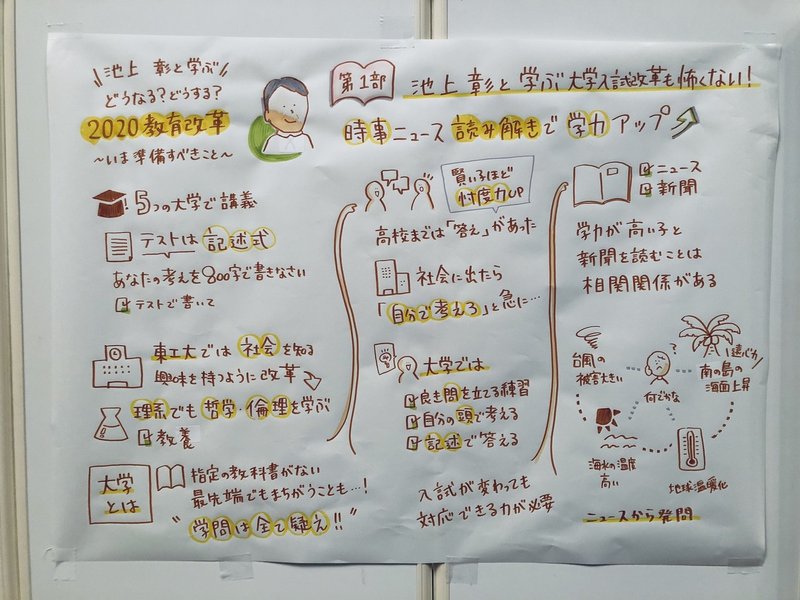 池上 彰と学ぶ
どうなる?どうする?
2020教育改革
～いま準備すべきこと～
第1部
池上 彰と学ぶ大学入試改革も怖くない!
時事ニュース読み解きで学力アップ
5つの大学で講義
テストは記述式
あなたの考えを800字で書きなさい
テストで書いて
東工大では社会を知る
興味を持つように改革
理系でも哲学・倫理を学ぶ
教養
大学
とは
指定の教科書がない
最先端でもまちがうことも…!
"学問は全て疑え!!"
賢い子ほど
忖度力UP
高校までは「答え」があった
社会に出たら
「自分で考えろ」と急に…
大学では
良き問を立てる練習
自分の頭で考える
記述で答える
入試が変わっても
対応できる力が必要
ニュース
新聞
学力が高い子と
新聞を読むことは
相関関係がある
台風の
被害大きい
?
何でかな
遠くの
南の島の
海面上昇
海水の温度
高い
地球温暖化
ニュースから発問